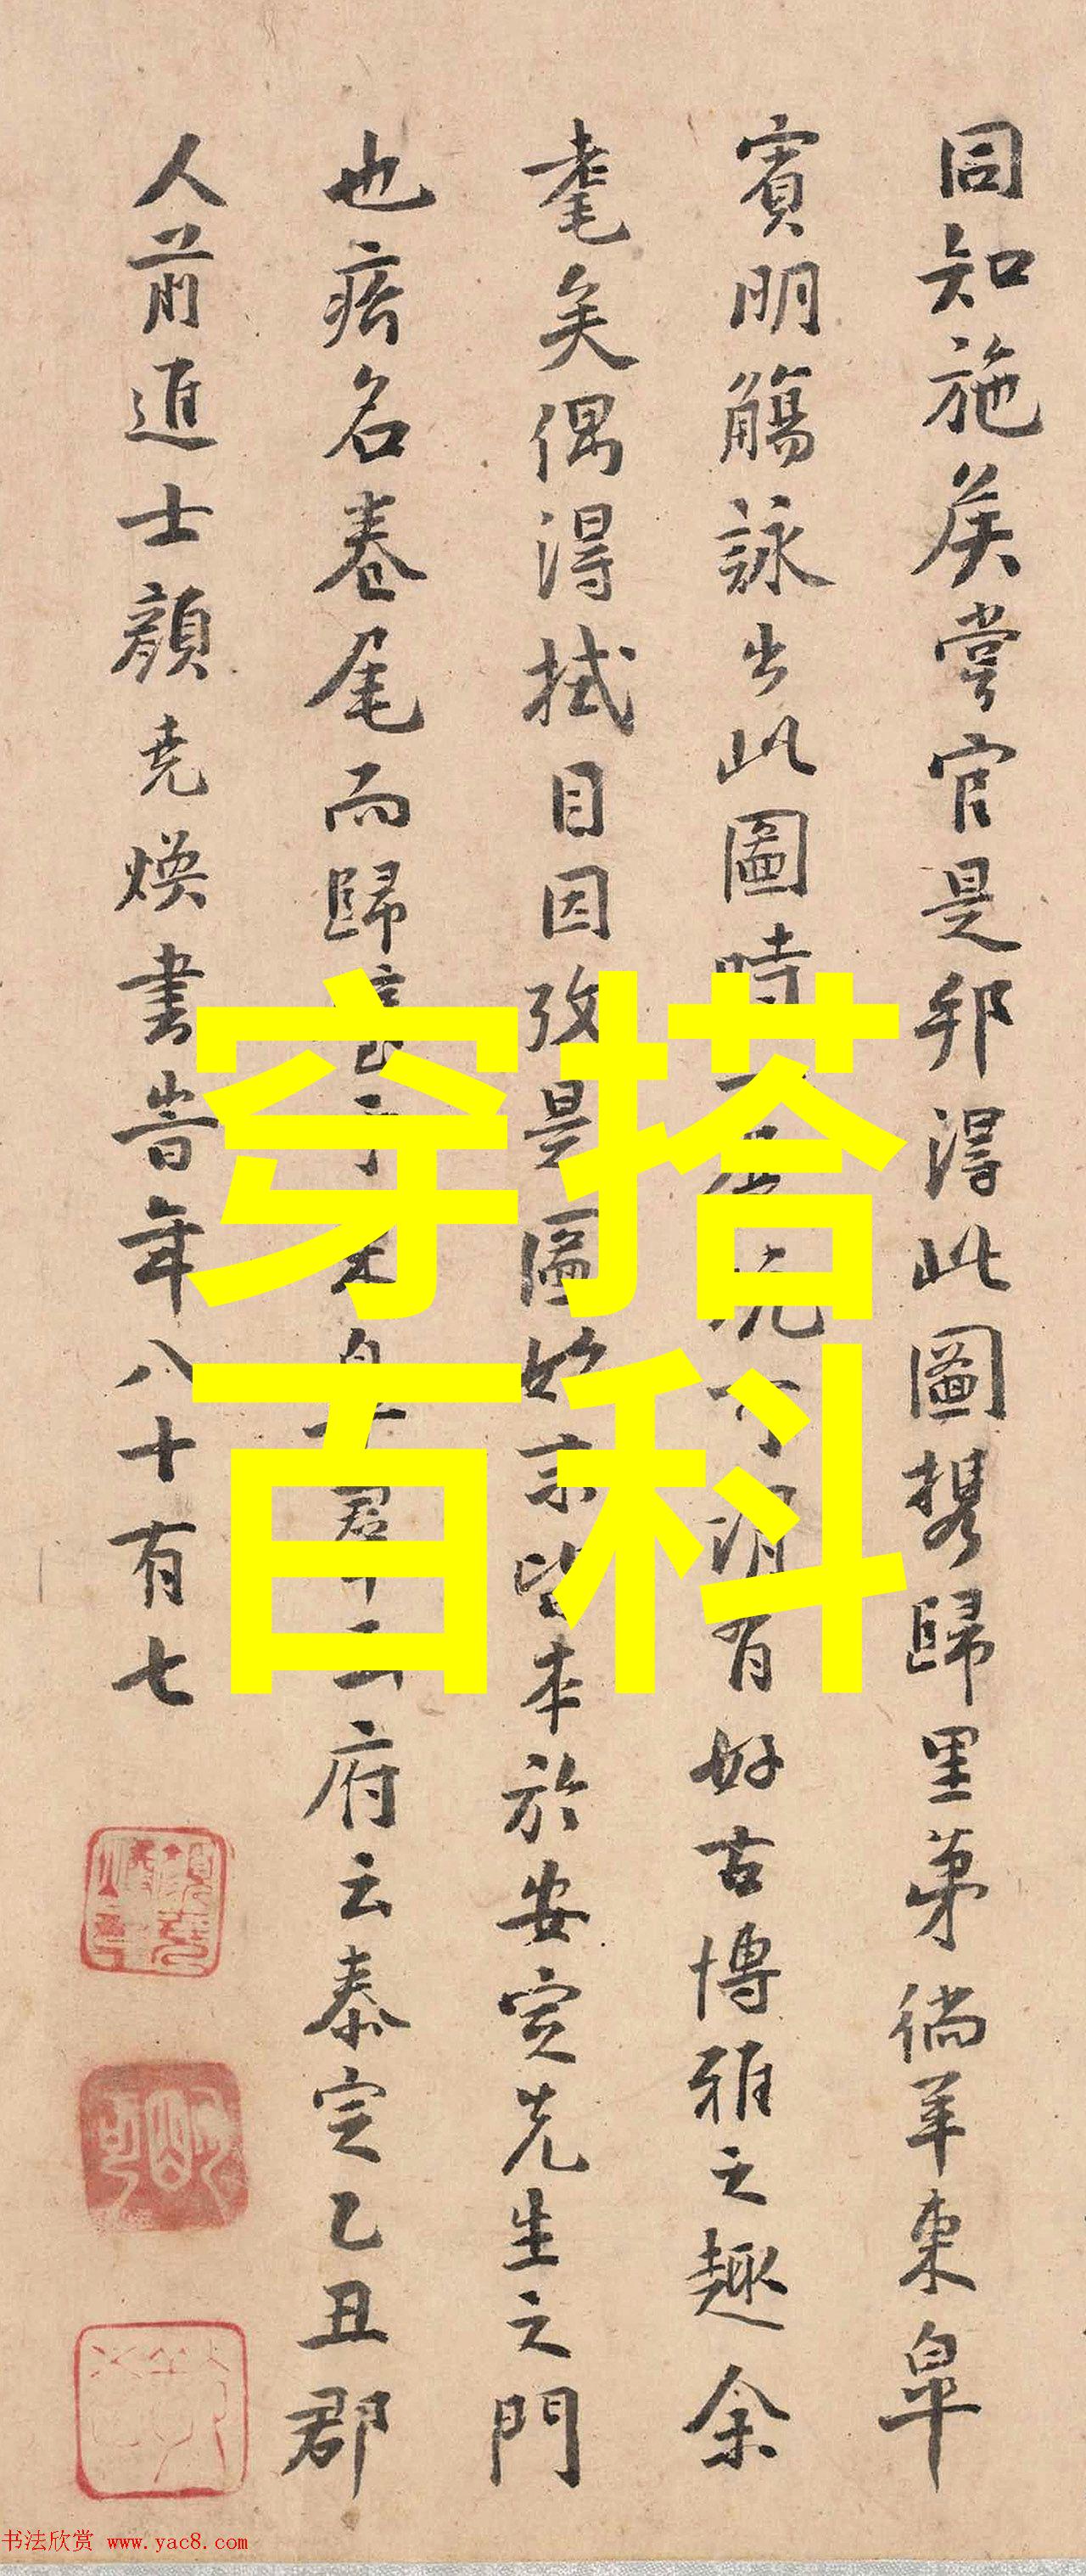 同知施矦嘗官是邦得此圖携歸里苐徜羊東皐
賔明觴詠出此圖時有好古博雅之趣余
耄矣偶得拭目因攷是圖始末皆本於安定先生之門
也瘔名卷尾而歸府云泰定乙丑郡
人前進士顔堯煥書峕年八十有七
穿搭
百科
书法欣赏 www.yac8.com